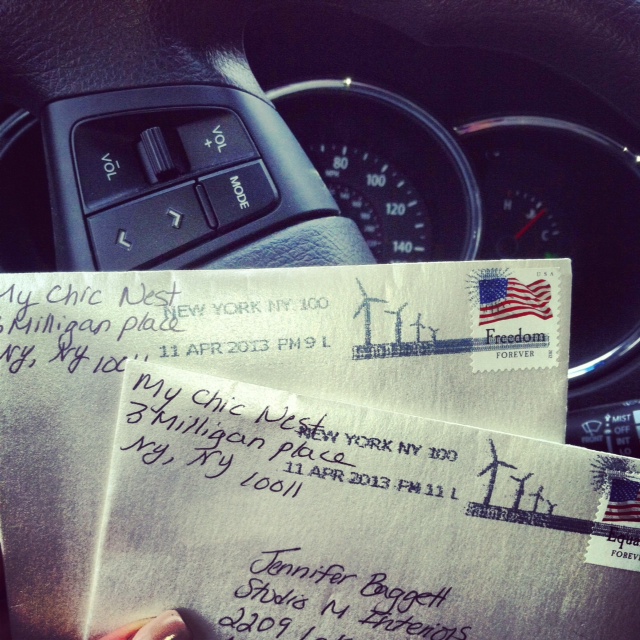 VOL
VOL
+
MODE
80
100
120
140
H
C
MIST
OFF
INT
My Chic Nest
3 Milligan place
NY, NY 10011
NEW YORK NY 100
11 APR 2013 PM 9 L
USA
Freedom
FOREVER
My Chic Nest
3 Milligan place
NY, NY
10011
NEW YORK NY 100
11 APR 2013 PM 11 L
Equa
FOREV
Jennifer Baggett
Studio M Interiors
2209